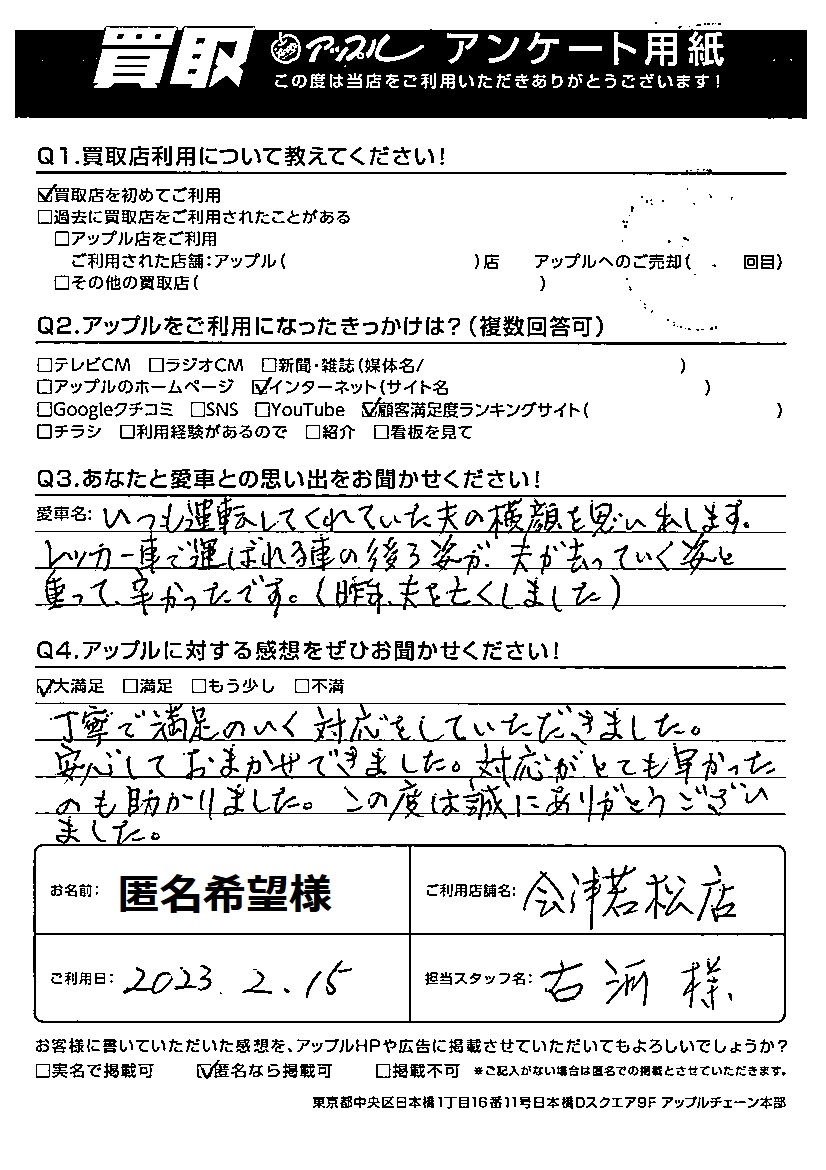 買取 アップル アンケート用紙
この度は当店をご利用いただきありがとうございます!
Q1.買取店利用について教えてください!
☑買取店を初めてご利用
□過去に買取店をご利用されたことがある
□アップル店をご利用
ご利用された店舗:アップル( )店 アップルへのご売却( 回目)
□その他の買取店( )
Q2.アップルをご利用になったきっかけは?(複数回答可)
□テレビCM □ラジオCM □新聞・雑誌(媒体名/ )
□アップルのホームページ ☑インターネット(サイト名 )
□Googleクチコミ □SNS □YouTube ☑顧客満足度ランキングサイト( )
□チラシ □利用経験があるので □紹介 □看板を見て
Q3.あなたと愛車との思い出をお聞かせください!
愛車名: いつも運転してくれていた夫の横顔を思い出します。
レッカー車で運ばれる車の後ろ姿が、夫が去っていく姿と
重って、辛かったです。(昨年、夫を亡くしました)
Q4.アップルに対する感想をぜひお聞かせください!
☑大満足 □満足 □もう少し □不満
丁寧で満足のいく対応をしていただきました。
安心しておまかせできました。対応がとても早かった
のも助かりました。この度は誠にありがとうござい
ました。
お名前: 匿名希望様 ご利用店舗名: 会津若松店
ご利用日: 2023.2.15 担当スタッフ名: 古酒 様
お客様に書いていただいた感想を、アップルHPや広告に掲載させていただいてもよろしいでしょうか?
□実名で掲載可 ☑匿名なら掲載可 □掲載不可 ※ご記入がない場合は匿名での掲載とさせていただきます。
東京都中央区日本橋1丁目16番11号日本橋Dスクエア9F アップルチェーン本部